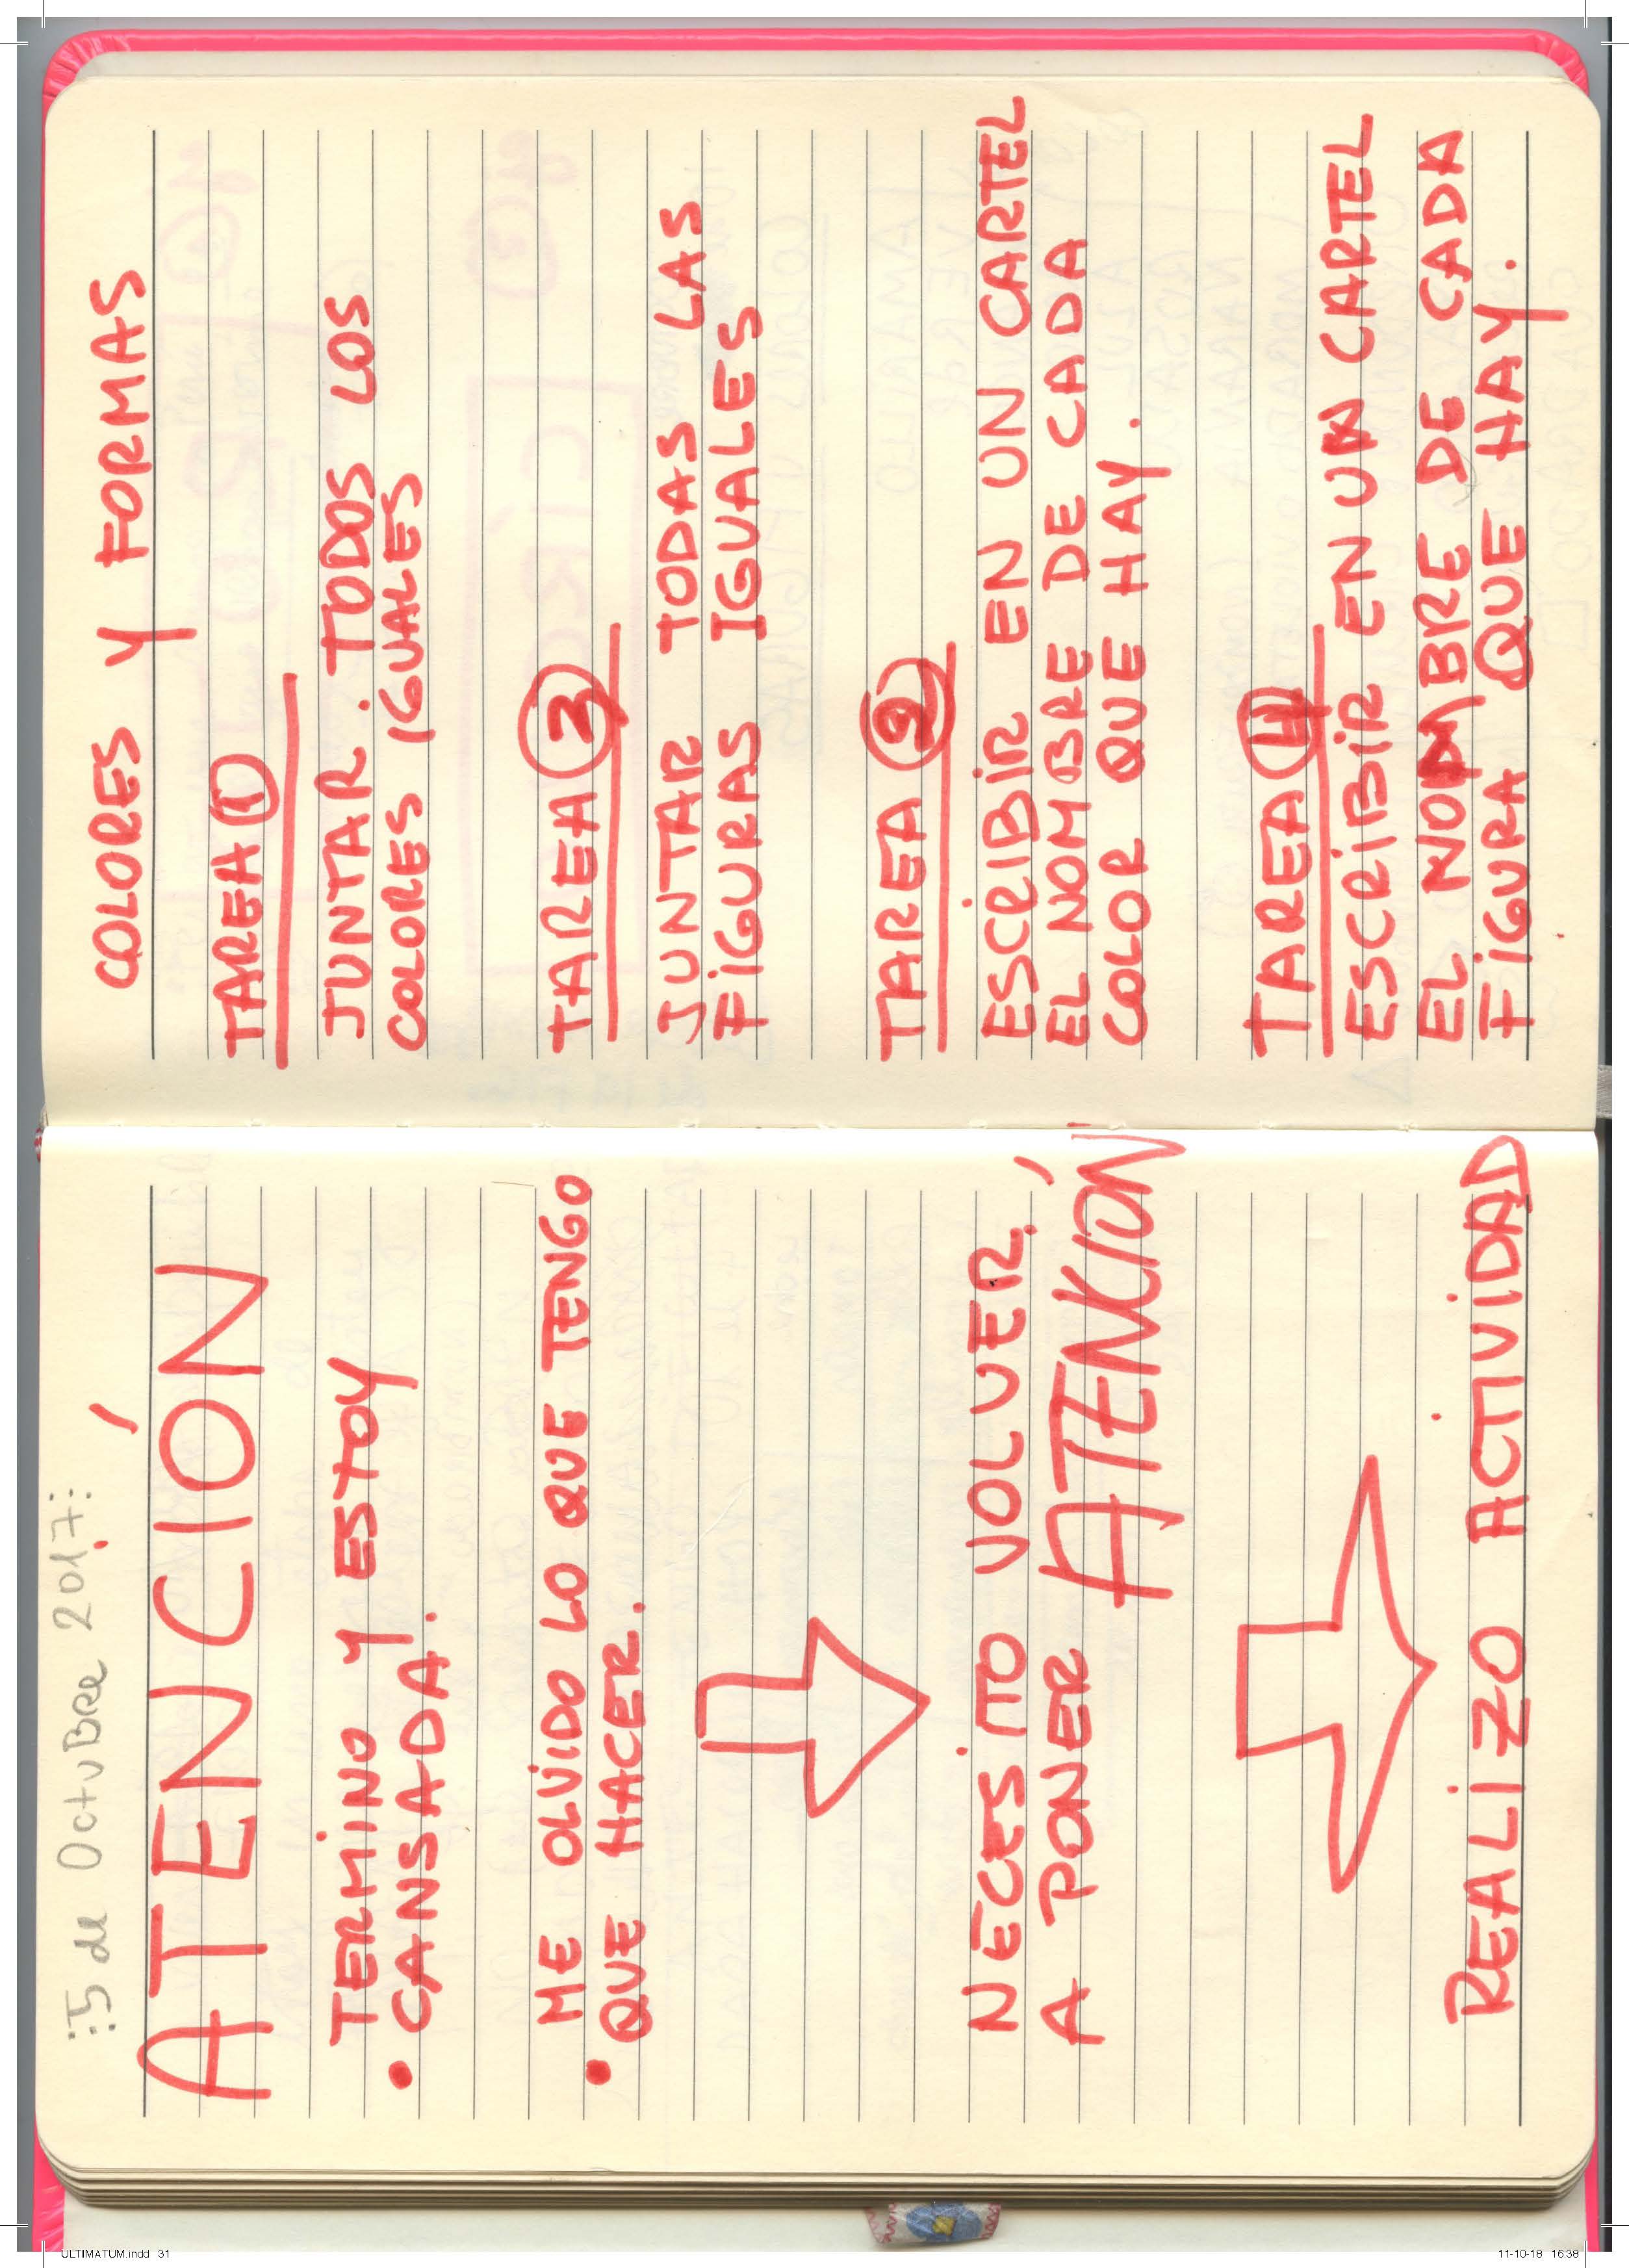 5 de Octubre 2017.
ATENCIÓN
TERMINO Y ESTOY
• CANSADA.
ME OLVIDO LO QUE TENGO
• QUE HACER.
NECESITO VOLVER
A PONER ATENCIÓN
REALIZO ACTIVIDAD
COLORES Y FORMAS
TAREA 1
JUNTAR. TODOS LOS
COLORES IGUALES
TAREA 3
JUNTAR TODAS LAS
FIGURAS IGUALES
TAREA 2
ESCRIBIR EN UN CARTEL
EL NOMBRE DE CADA
COLOR QUE HAY.
TAREA 4
ESCRIBIR EN UN CARTEL
EL NOMBRE DE CADA
FIGURA QUE HAY.
ULTIMATUM.indd 31
11-10-18 16:38